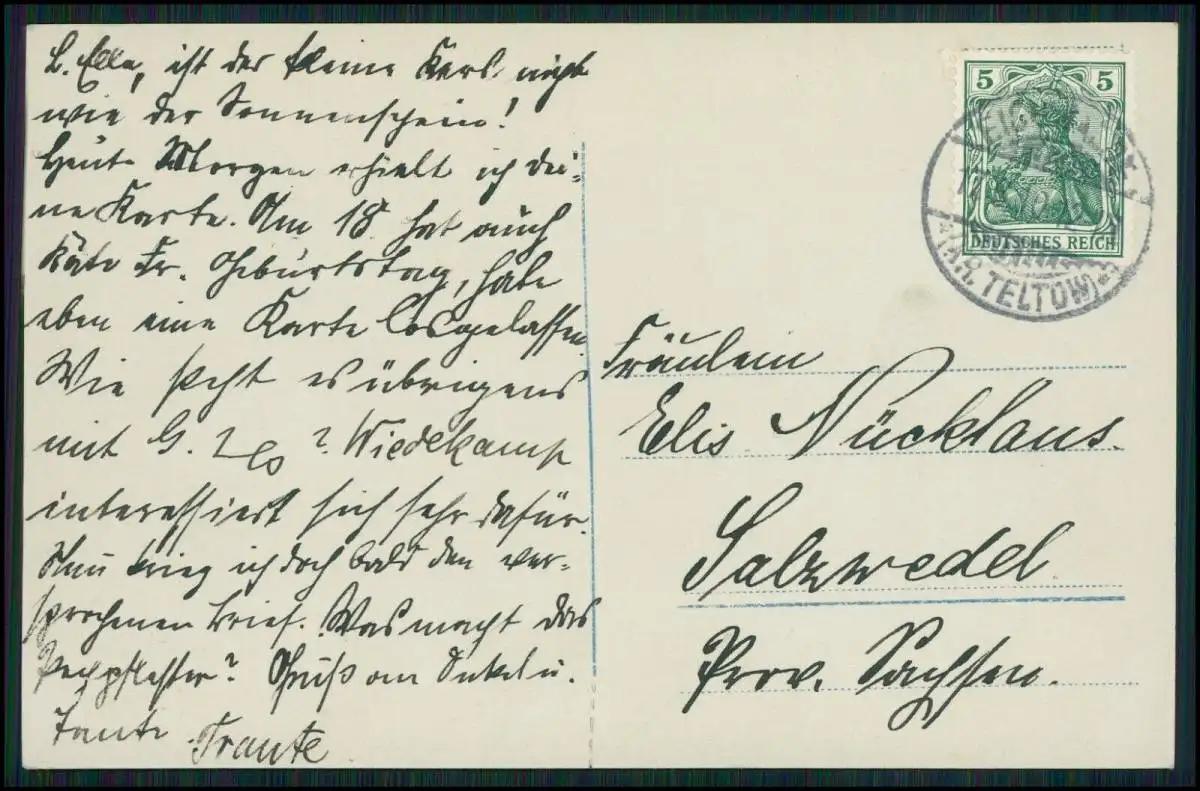 L. Ella, ist der kleine Kerl nicht
wie der Sonnenschein!
Heute Morgen erhielt ich dei-
ne Karte. Am 18. hat auch
Käte Fr. Geburtstag, habe
eben eine Karte losgelassen.
Wie steht es übrigens
mit G. ? Wiedekamp
interessiert sich sehr dafür.
Nun krieg ich doch bald den ver-
sprochenen Brief. Was macht das
Pechpflaster? Gruß an Onkel u.
Tante Traute
5 5
DEUTSCHES REICH
TELTOW
Fräulein
Elis Nücklaus.
Salzwedel
Prov. Sachsen.